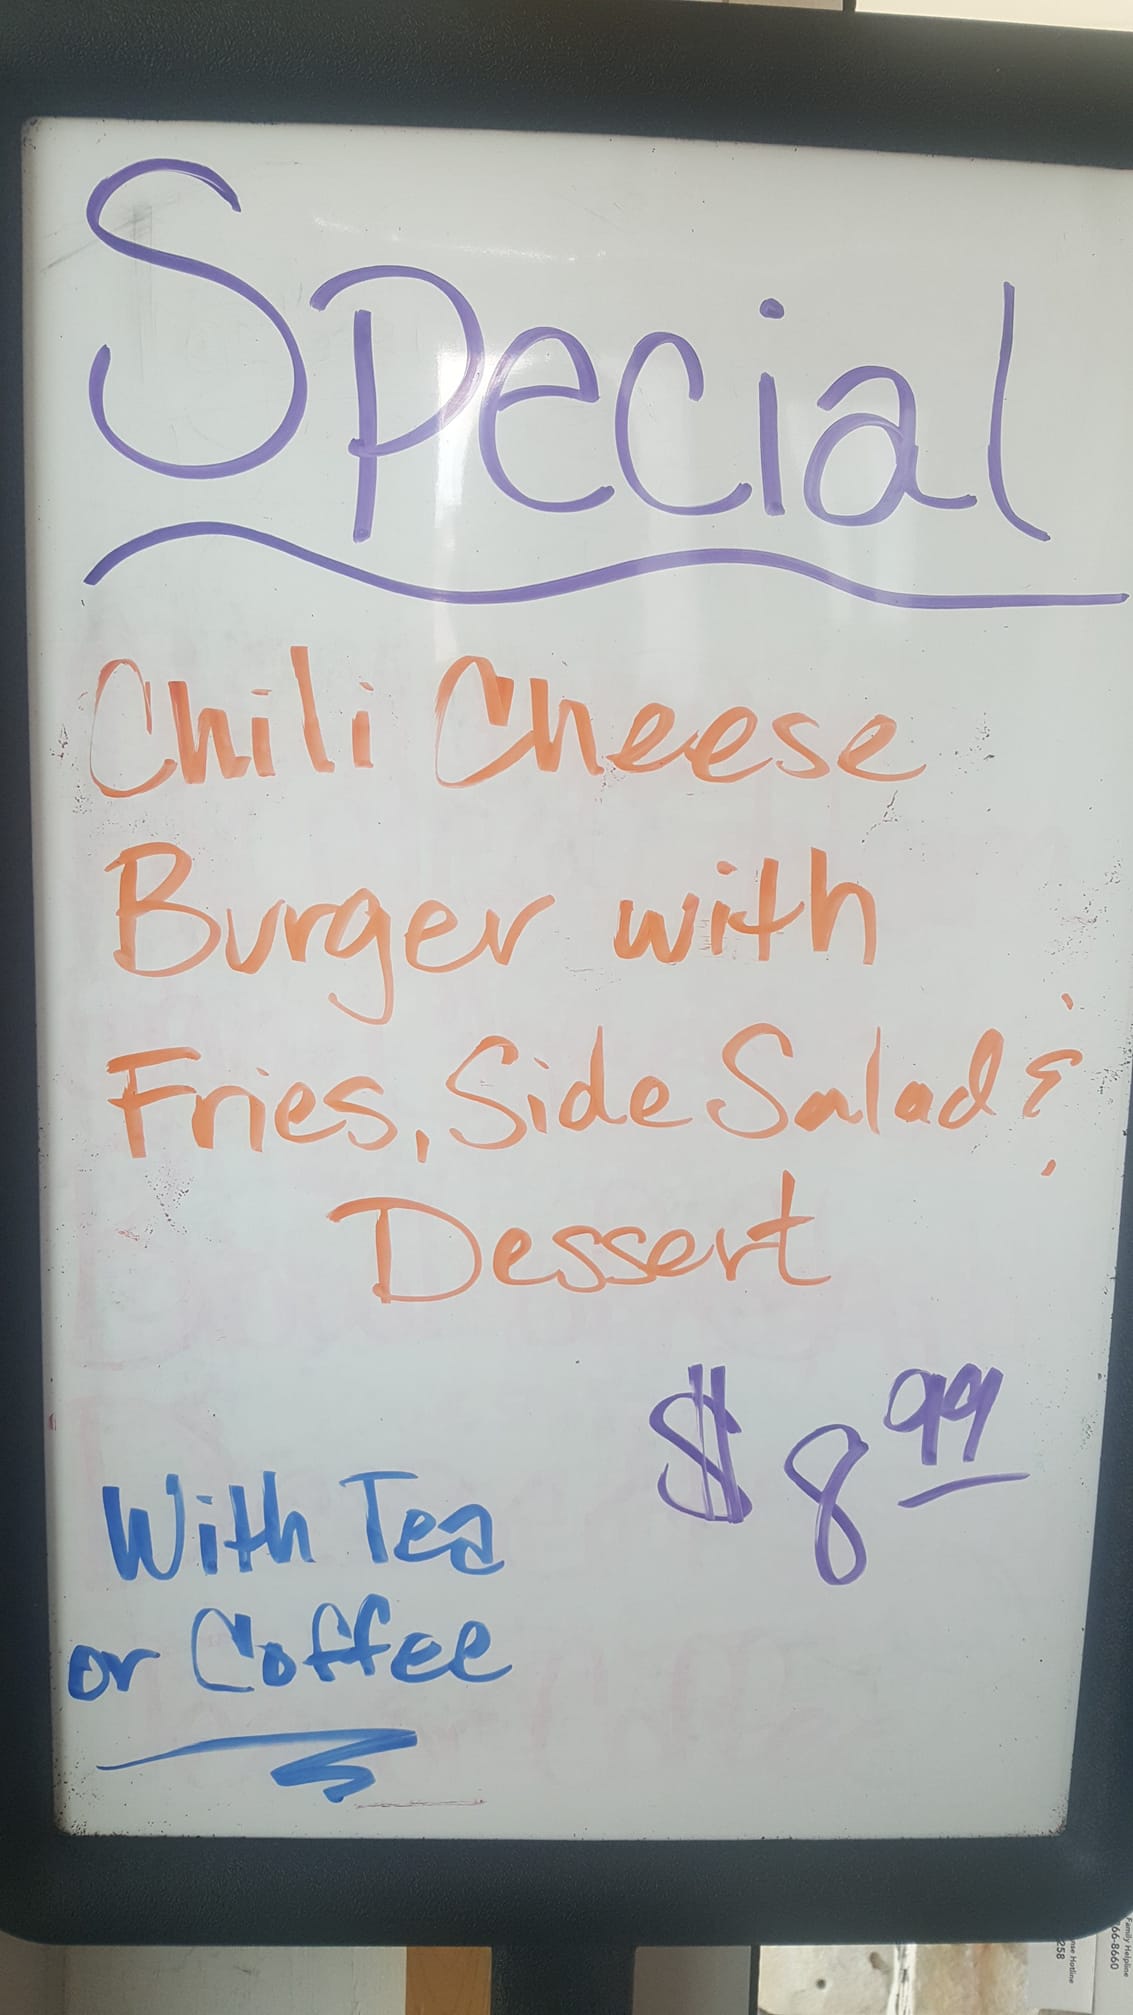 Special
Chili Cheese
Burger with
Fries, Side Salad &
Dessert
$8.99
With Tea
or Coffee
Family Helpline
66-8660
nse Hotline
258